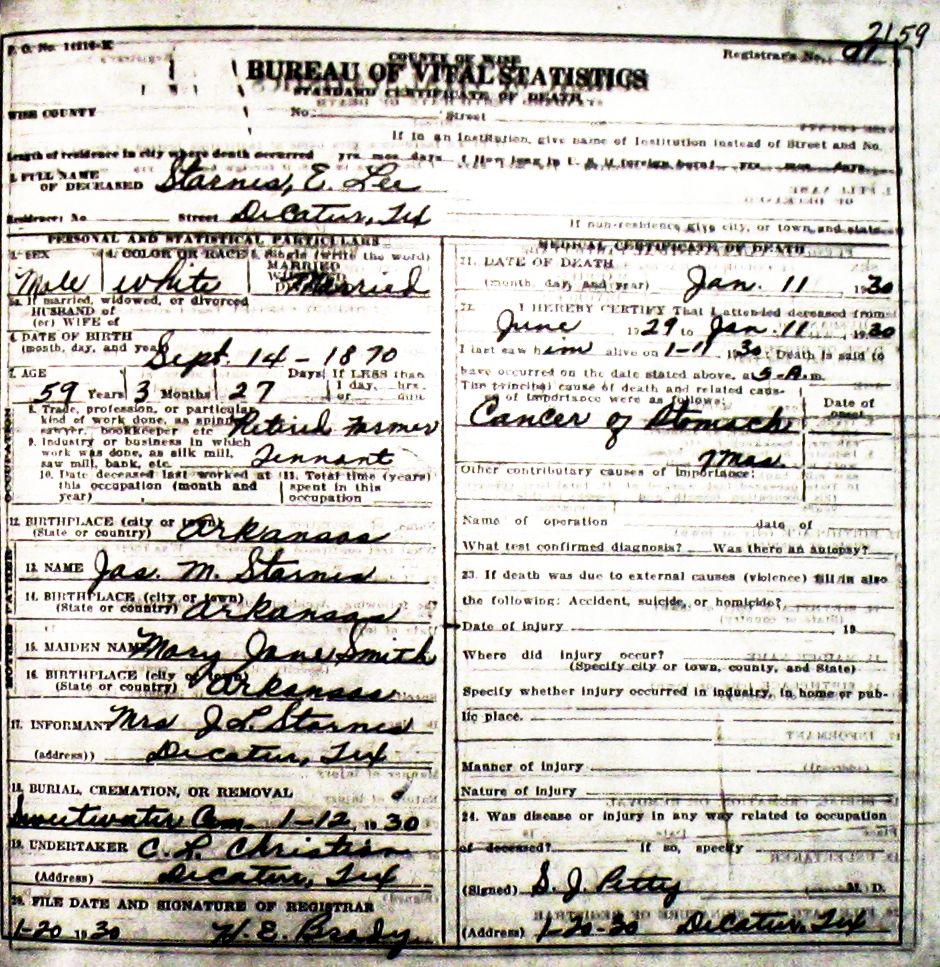 2159
F. O. No.
Registrar's No. 91
COUNTY OF WISE
BUREAU OF VITAL STATISTICS
STANDARD CERTIFICATE OF DEATH
WISE COUNTY
No. Street
If in an Institution, give name of Institution instead of Street and No.
Length of residence in city where death occurred yrs. mos. days. How long in U. S. if foreign born? yrs. mos. days.
FULL NAME
OF DECEASED Starnes, E. Lee
Residence: No Street Decatur, Tex
If non-residence give city, or town, and state.
PERSONAL AND STATISTICAL PARTICULARS
3. SEX 4. COLOR OR RACE 5. Single (write the word)
MARRIED
Male White Married
5a. If married, widowed, or divorced
HUSBAND of
(or) WIFE of
6. DATE OF BIRTH
(month, day, and year) Sept. 14 - 1870
7. AGE Days If LESS than
59 Years 3 Months 27 1 day, hrs.
or min.
OCCUPATION
8. Trade, profession, or particular
kind of work done, as spinner
sawyer, bookkeeper etc Retired Farmer
9. Industry or business in which
work was done, as silk mill,
saw mill, bank, etc. Tennant
10. Date deceased last worked at 11. Total time (years)
this occupation (month and spent in this
year) occupation
12. BIRTHPLACE (city or town)
(State or country) Arkansas
FATHER
13. NAME Jas. M. Starnes
14. BIRTHPLACE (city or town)
(State or country) Arkansas
MOTHER
15. MAIDEN NAME Mary Jane Smith
16. BIRTHPLACE (city or town)
(State or country) Arkansas
17. INFORMANT Mrs J. L. Starnes
(address)) Decatur, Tex
18. BURIAL, CREMATION, OR REMOVAL
Sweetwater Cem. 1-12, 1930
19. UNDERTAKER C. L. Christian
(Address) Decatur, Tex
20. FILE DATE AND SIGNATURE OF REGISTRAR
1-20 1930 H. E. Brady
MEDICAL CERTIFICATE OF DEATH
21. DATE OF DEATH
(month, day, and year) Jan. 11 1930
22. I HEREBY CERTIFY That I attended deceased from
June 1929 to Jan. 11, 1930
I last saw him alive on 1-11 1930; Death is said to
have occurred on the date stated above, at 5-A.m.
The principal cause of death and related causes
of importance were as follows: Date of
onset
Cancer of Stomach
Other contributary causes of importance:
Name of operation date of
What test confirmed diagnosis? Was there an autopsy?
23. If death was due to external causes (violence) fill in also
the following: Accident, suicide, or homicide?
Date of injury 19
Where did injury occur?
(Specify city or town, county, and State)
Specify whether injury occurred in industry, in home or pub-
lic place.
Manner of injury
Nature of injury
24. Was disease or injury in any way related to occupation
of deceased? if so, specify
(Signed) S. J. Petty M. D.
(Address) 1-20-30 Decatur, Tex